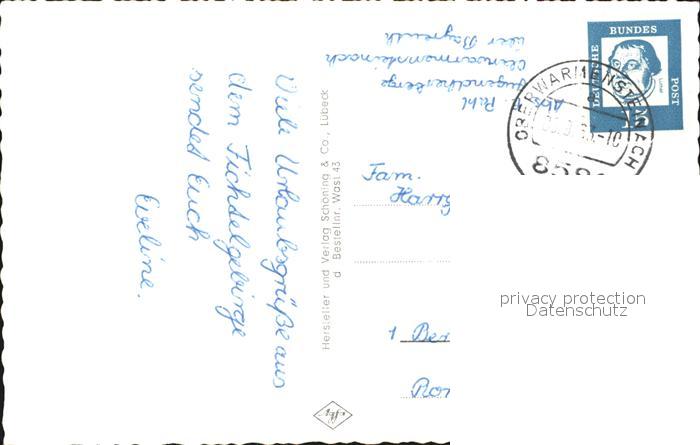 Viele Urlaubsgrüße aus
dem Fichtelgebirge
sendet Euch
Eveline.
Hersteller und Verlag Schöning & Co., Lübeck
d Bestellnr. Wasl 43
Abs.
Jugendherberge
Oberwarmensteinach
über Bayreuth
DEUTSCHE
BUNDES
POST
Luther
15
OBERWARMENSTEINACH
-10
858
Fam.
Harry
1 Ber
privacy protection
Datenschutz
Agfa